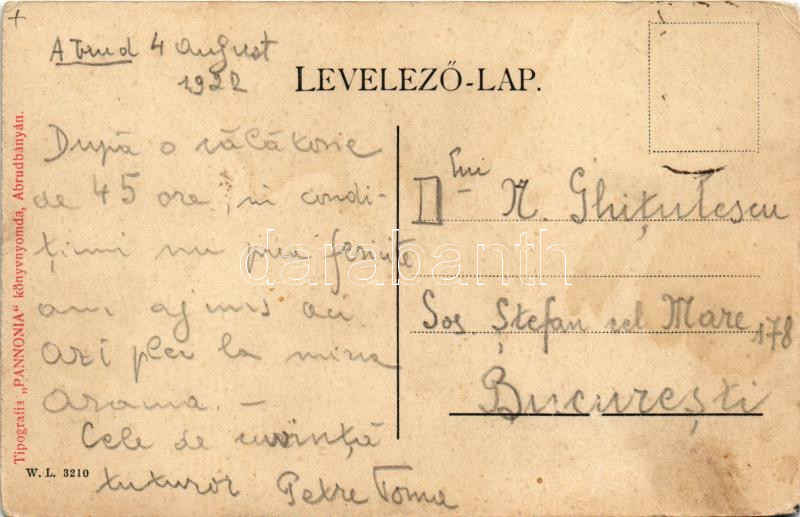 Abrud 4 august
1922
LEVELEZŐ-LAP.
După o călătorie
de 45 ore, in condi-
țiuni nu prea fericite
am ajuns aci
azi plec la mina
arama. —
Cele de cuviință
tuturor Petre Toma
Dlui
N. Ghițulescu
Șos Ștefan cel Mare 178
București
Tipografia „PANNONIA" könyvnyomda, Abrudbányán.
W. L. 3210
darabanth